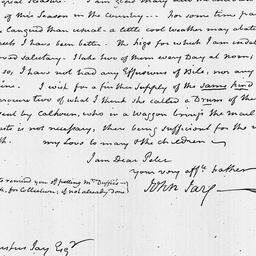 of this Season in the Country... For some time pa
e languid than usual - a little cool weather may abate
eets I have been better. The figs for which I am indebt
ved salutary. I take two of them every Day at noon;
so, I have not had any Effusions of Bile, nor any
ins. I wish for a further Supply of the same kind
rocure two of what I think she called a Drum of the
ent by Calhoun, who in a Waggon brings the mail
aste is not necessary, there being sufficient for the
th. my Love to mary & the children
I am Dear Peter
Your very affte Father
John Jay.
to remind you of putting Mr Duffie's
for Collection; if not already done
ustus Jay Esqr